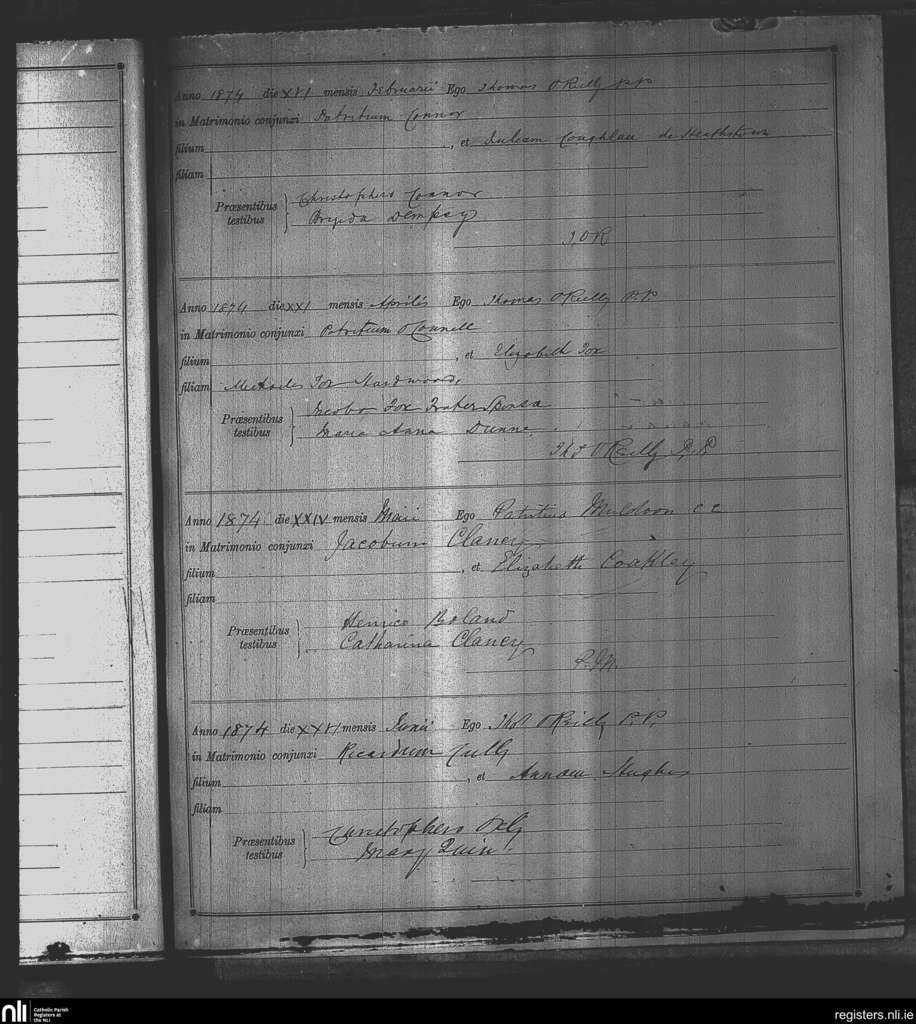 Anno 1874 die XVI mensis Februarii Ego Thomas O'Reilly P.P
in Matrimonio conjunxi Patritium Connor
filium , et Juliam Coughlan de Heathstown
filiam
Præsentibus testibus } Christophero Connor
Brigida Dempsy
T, O R
Anno 1874 die XXI mensis Aprilis Ego Thomas O'Reilly P.P
in Matrimonio conjunxi Patritium O'Connell
filium , et Elizabeth Fox
filiam Michaelis Fox Hardwood,
Præsentibus testibus } Jacobo Fox Frater Sponsa
Maria Anna Dunne
Ths O'Reilly P, P.
Anno 1874 die XXIV mensis Maii Ego Patritius Muldoon C C
in Matrimonio conjunxi Jacobum Clancy
filium , et Elizabeth Coakley
filiam
Præsentibus testibus } Henrico Boland
Catharina Clancy
P. J M
Anno 1874 die XXVI mensis Junii Ego Thos O'Reilly P. P,
in Matrimonio conjunxi Ricardum Cully
filium , et Annam Hughes
filiam
Præsentibus testibus } Christophero
Mary Quin
nli Catholic Parish
Registers at
the NLI
registers.nli.ie